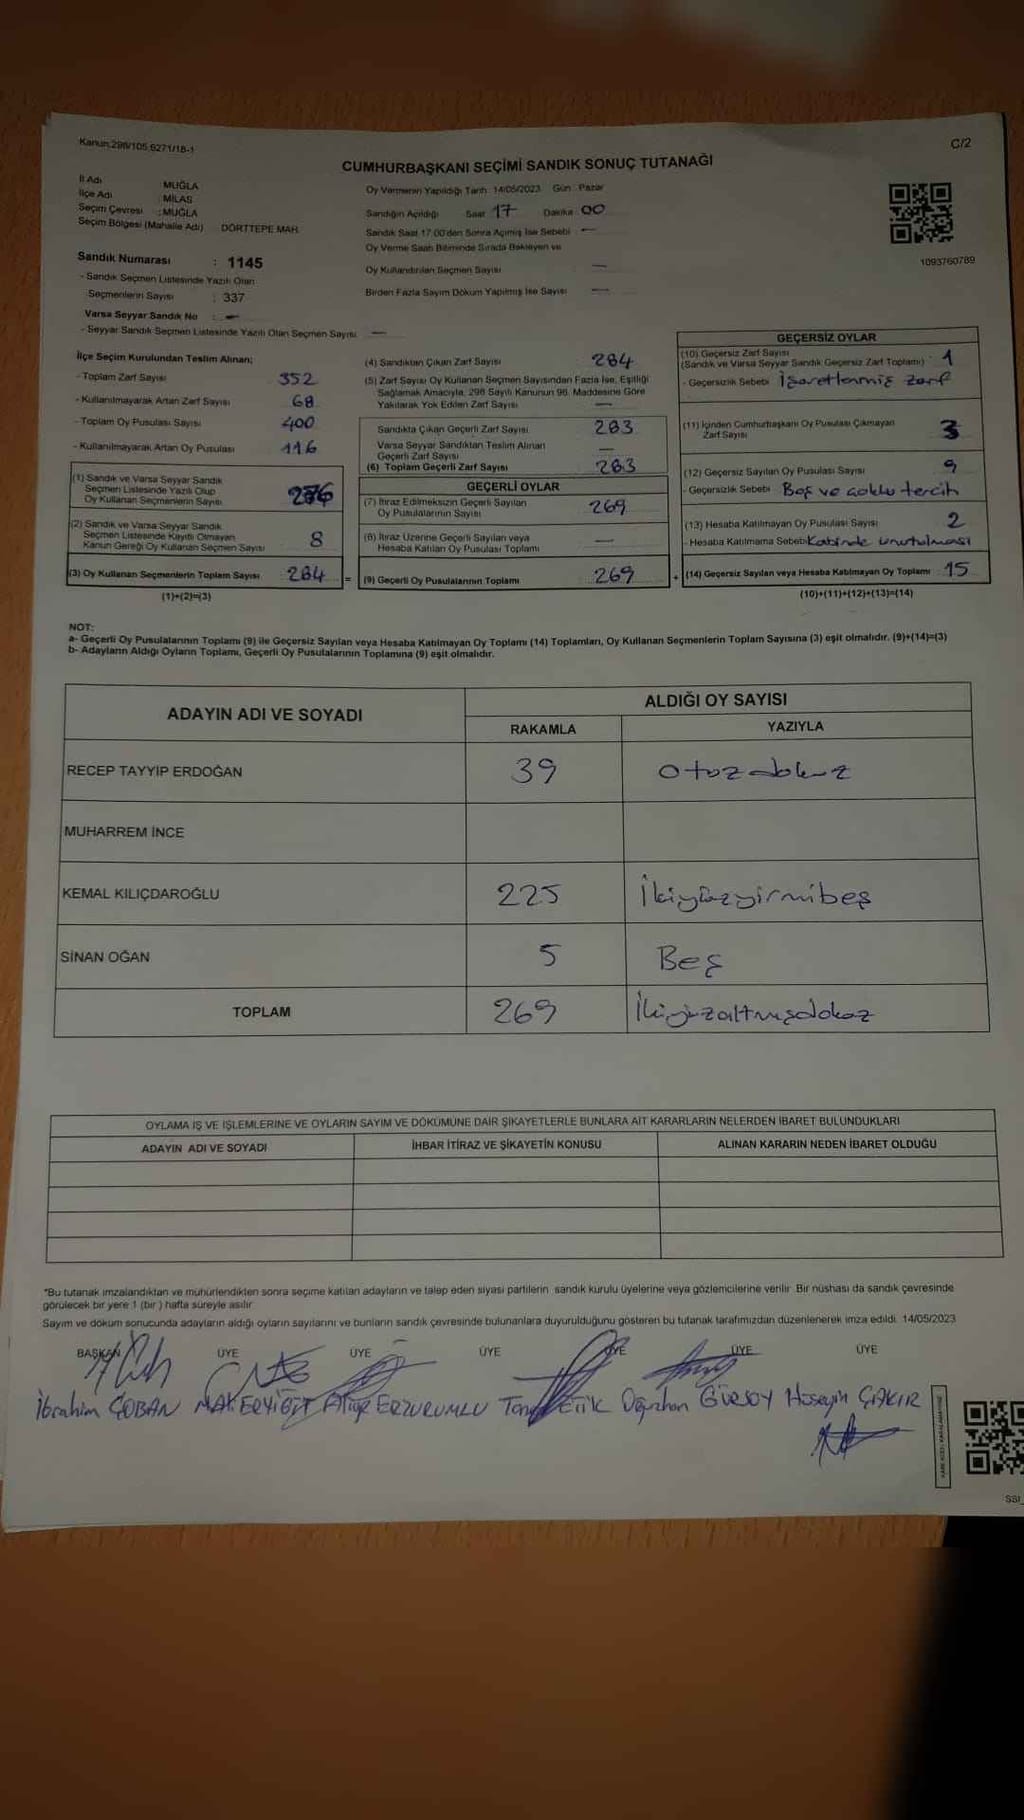 Kanun.298/105,6271/18-1
C/2
CUMHURBAŞKANI SEÇİMİ SANDIK SONUÇ TUTANAĞI
İl Adı : MUĞLA
İlçe Adı : MİLAS
Seçim Çevresi : MUĞLA
Seçim Bölgesi (Mahalle Adı) DÖRTTEPE MAH.
Sandık Numarası : 1145
- Sandık Seçmen Listesinde Yazılı Olan
Seçmenlerin Sayısı : 337
Varsa Seyyar Sandık No : —
- Seyyar Sandık Seçmen Listesinde Yazılı Olan Seçmen Sayısı —
Oy Vermenin Yapıldığı Tarih : 14/05/2023 Gün : Pazar
Sandığın Açıldığı Saat 17 Dakika 00
Sandık Saat 17.00'den Sonra Açılmış İse Sebebi : —
Oy Verme Saati Bitiminde Sırada Bekleyen ve
Oy Kullandırılan Seçmen Sayısı —
Birden Fazla Sayım Döküm Yapılmış İse Sayısı —
1093760789
İlçe Seçim Kurulundan Teslim Alınan;
- Toplam Zarf Sayısı 352
- Kullanılmayarak Artan Zarf Sayısı 68
- Toplam Oy Pusulası Sayısı 400
- Kullanılmayarak Artan Oy Pusulası 116
(1) Sandık ve Varsa Seyyar Sandık
Seçmen Listesinde Yazılı Olup
Oy Kullanan Seçmenlerin Sayısı 276
(2) Sandık ve Varsa Seyyar Sandık
Seçmen Listesinde Kayıtlı Olmayan
Kanun Gereği Oy Kullanan Seçmen Sayısı 8
(3) Oy Kullanan Seçmenlerin Toplam Sayısı 284 =
(1)+(2)=(3)
(4) Sandıktan Çıkan Zarf Sayısı 284
(5) Zarf Sayısı Oy Kullanan Seçmen Sayısından Fazla İse, Eşitliği
Sağlamak Amacıyla, 298 Sayılı Kanunun 98. Maddesine Göre
Yakılarak Yok Edilen Zarf Sayısı —
Sandıkta Çıkan Geçerli Zarf Sayısı 283
Varsa Seyyar Sandıktan Teslim Alınan
Geçerli Zarf Sayısı —
(6) Toplam Geçerli Zarf Sayısı 283
GEÇERLİ OYLAR
(7) İtiraz Edilmeksizin Geçerli Sayılan
Oy Pusulalarının Sayısı 269
(8) İtiraz Üzerine Geçerli Sayılan veya
Hesaba Katılan Oy Pusulası Toplamı —
(9) Geçerli Oy Pusulalarının Toplamı 269 +
GEÇERSİZ OYLAR
(10) Geçersiz Zarf Sayısı
(Sandık ve Varsa Seyyar Sandık Geçersiz Zarf Toplamı) 1
- Geçersizlik Sebebi İşaretlenmiş zarf
(11) İçinden Cumhurbaşkanı Oy Pusulası Çıkmayan
Zarf Sayısı 3
(12) Geçersiz Sayılan Oy Pusulası Sayısı 9
- Geçersizlik Sebebi Boş ve çoklu tercih
(13) Hesaba Katılmayan Oy Pusulası Sayısı 2
- Hesaba Katılmama Sebebi Kabinde unutulması
(14) Geçersiz Sayılan veya Hesaba Katılmayan Oy Toplamı 15
(10)+(11)+(12)+(13)=(14)
NOT:
a- Geçerli Oy Pusulalarının Toplamı (9) ile Geçersiz Sayılan veya Hesaba Katılmayan Oy Toplamı (14) Toplamları, Oy Kullanan Seçmenlerin Toplam Sayısına (3) eşit olmalıdır. (9)+(14)=(3)
b- Adayların Aldığı Oyların Toplamı, Geçerli Oy Pusulalarının Toplamına (9) eşit olmalıdır.
ADAYIN ADI VE SOYADI ALDIĞI OY SAYISI
RAKAMLA YAZIYLA
RECEP TAYYİP ERDOĞAN 39 otuzdokuz
MUHARREM İNCE
KEMAL KILIÇDAROĞLU 225 İkiyüzyirmibeş
SİNAN OĞAN 5 Beş
TOPLAM 269 İkiyüzaltmışdokuz
OYLAMA İŞ VE İŞLEMLERİNE VE OYLARIN SAYIM VE DÖKÜMÜNE DAİR ŞİKAYETLERLE BUNLARA AİT KARARLARIN NELERDEN İBARET BULUNDUKLARI
ADAYIN ADI VE SOYADI İHBAR İTİRAZ VE ŞİKAYETİN KONUSU ALINAN KARARIN NEDEN İBARET OLDUĞU
*Bu tutanak imzalandıktan ve mühürlendikten sonra seçime katılan adayların ve talep eden siyasi partilerin sandık kurulu üyelerine veya gözlemcilerine verilir. Bir nüshası da sandık çevresinde
görülecek bir yere 1 (bir ) hafta süreyle asılır.
Sayım ve döküm sonucunda adayların aldığı oyların sayılarını ve bunların sandık çevresinde bulunanlara duyurulduğunu gösteren bu tutanak tarafımızdan düzenlenerek imza edildi. 14/05/2023
BAŞKAN ÜYE ÜYE ÜYE ÜYE ÜYE ÜYE
İbrahim ÇOBAN ERYİĞİT ERZURUMLU Oğuzhan GÜRSOY Hüseyin ÇAKIR
SSI_